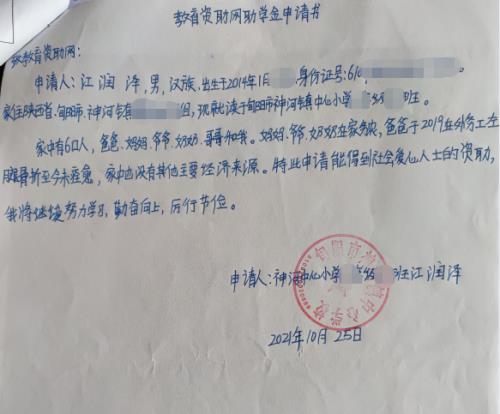 教育资助网助学金申请书
致教育资助网：
申请人：江润泽，男，汉族，出生于2014年1月 身份证号：610 。
家住陕西省，旬阳市，神河镇 ，现就读于旬阳市神河镇中心小学 级 班。
家中有6口人，爸爸、妈妈、爷爷、奶奶、哥哥和我。妈妈、爷爷、奶奶在家务农，爸爸于2019年外务工左
腿骨折至今未痊愈，家中也没有其他主要经济来源。特此申请能得到社会爱心人士的资助，
我将继续努力学习，勤奋向上，厉行节俭。
申请人：神河中心小学 级 班江润泽
2021年10月25日